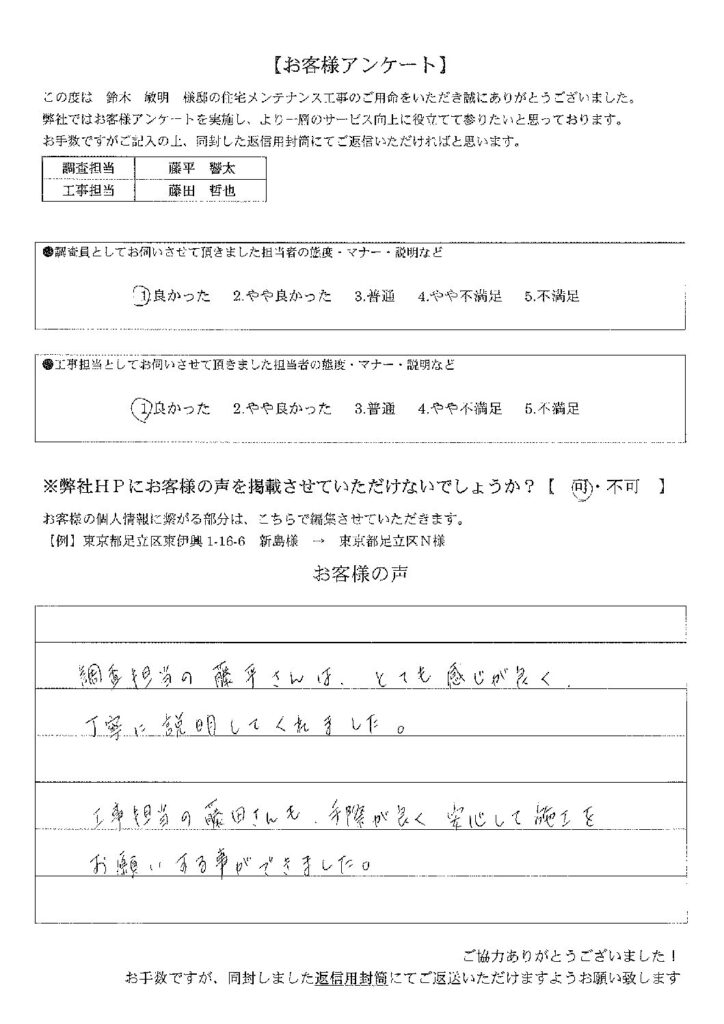 【お客様アンケート】
この度は 鈴木 敏明 様邸の住宅メンテナンス工事のご用命をいただき誠にありがとうございました。
弊社ではお客様アンケートを実施し、より一層のサービス向上に役立てて参りたいと思っております。
お手数ですがご記入の上、同封した返信用封筒にてご返信いただければと思います。
調査担当 藤平 響太
工事担当 藤田 哲也
●調査員としてお伺いさせて頂きました担当者の態度・マナー・説明など
1.良かった 2.やや良かった 3.普通 4.やや不満足 5.不満足
●工事担当としてお伺いさせて頂きました担当者の態度・マナー・説明など
1.良かった 2.やや良かった 3.普通 4.やや不満足 5.不満足
※弊社HPにお客様の声を掲載させていただけないでしょうか?【 可・不可 】
お客様の個人情報に繋がる部分は、こちらで編集させていただきます。
【例】東京都足立区東伊興 1-16-6 新島様 → 東京都足立区N様
お客様の声
調査担当の藤平さんは、とても感じが良く、
丁寧に説明してくれました。
工事担当の藤田さんも、手際が良く 安心して施工を
お願いする事ができました。
ご協力ありがとうございました!
お手数ですが、同封しました返信用封筒にてご返送いただけますようお願い致します